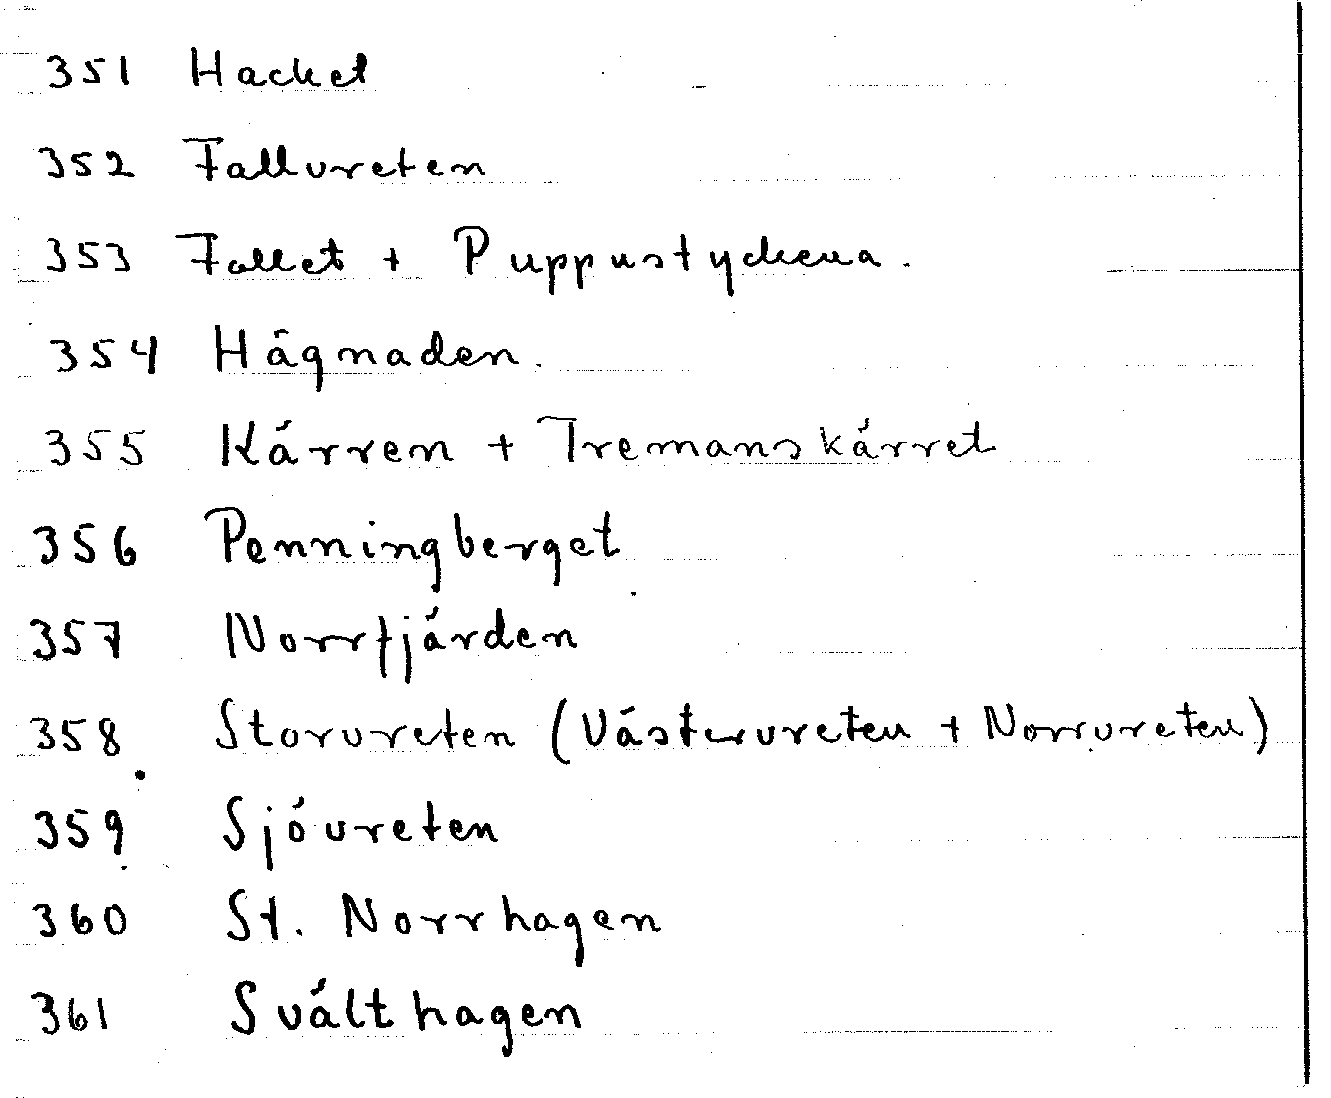 351 Hacket
352 Fallvreten
353 Fallet + Puppustyckena.
354 Hägnaden.
355 Kärren + Tremanskärret
356 Penningberget
357 Norrfjärden
358 Storvreten (Västervreten + Norrvreten)
359 Sjövreten
360 St. Norrhagen
361 Svälthagen